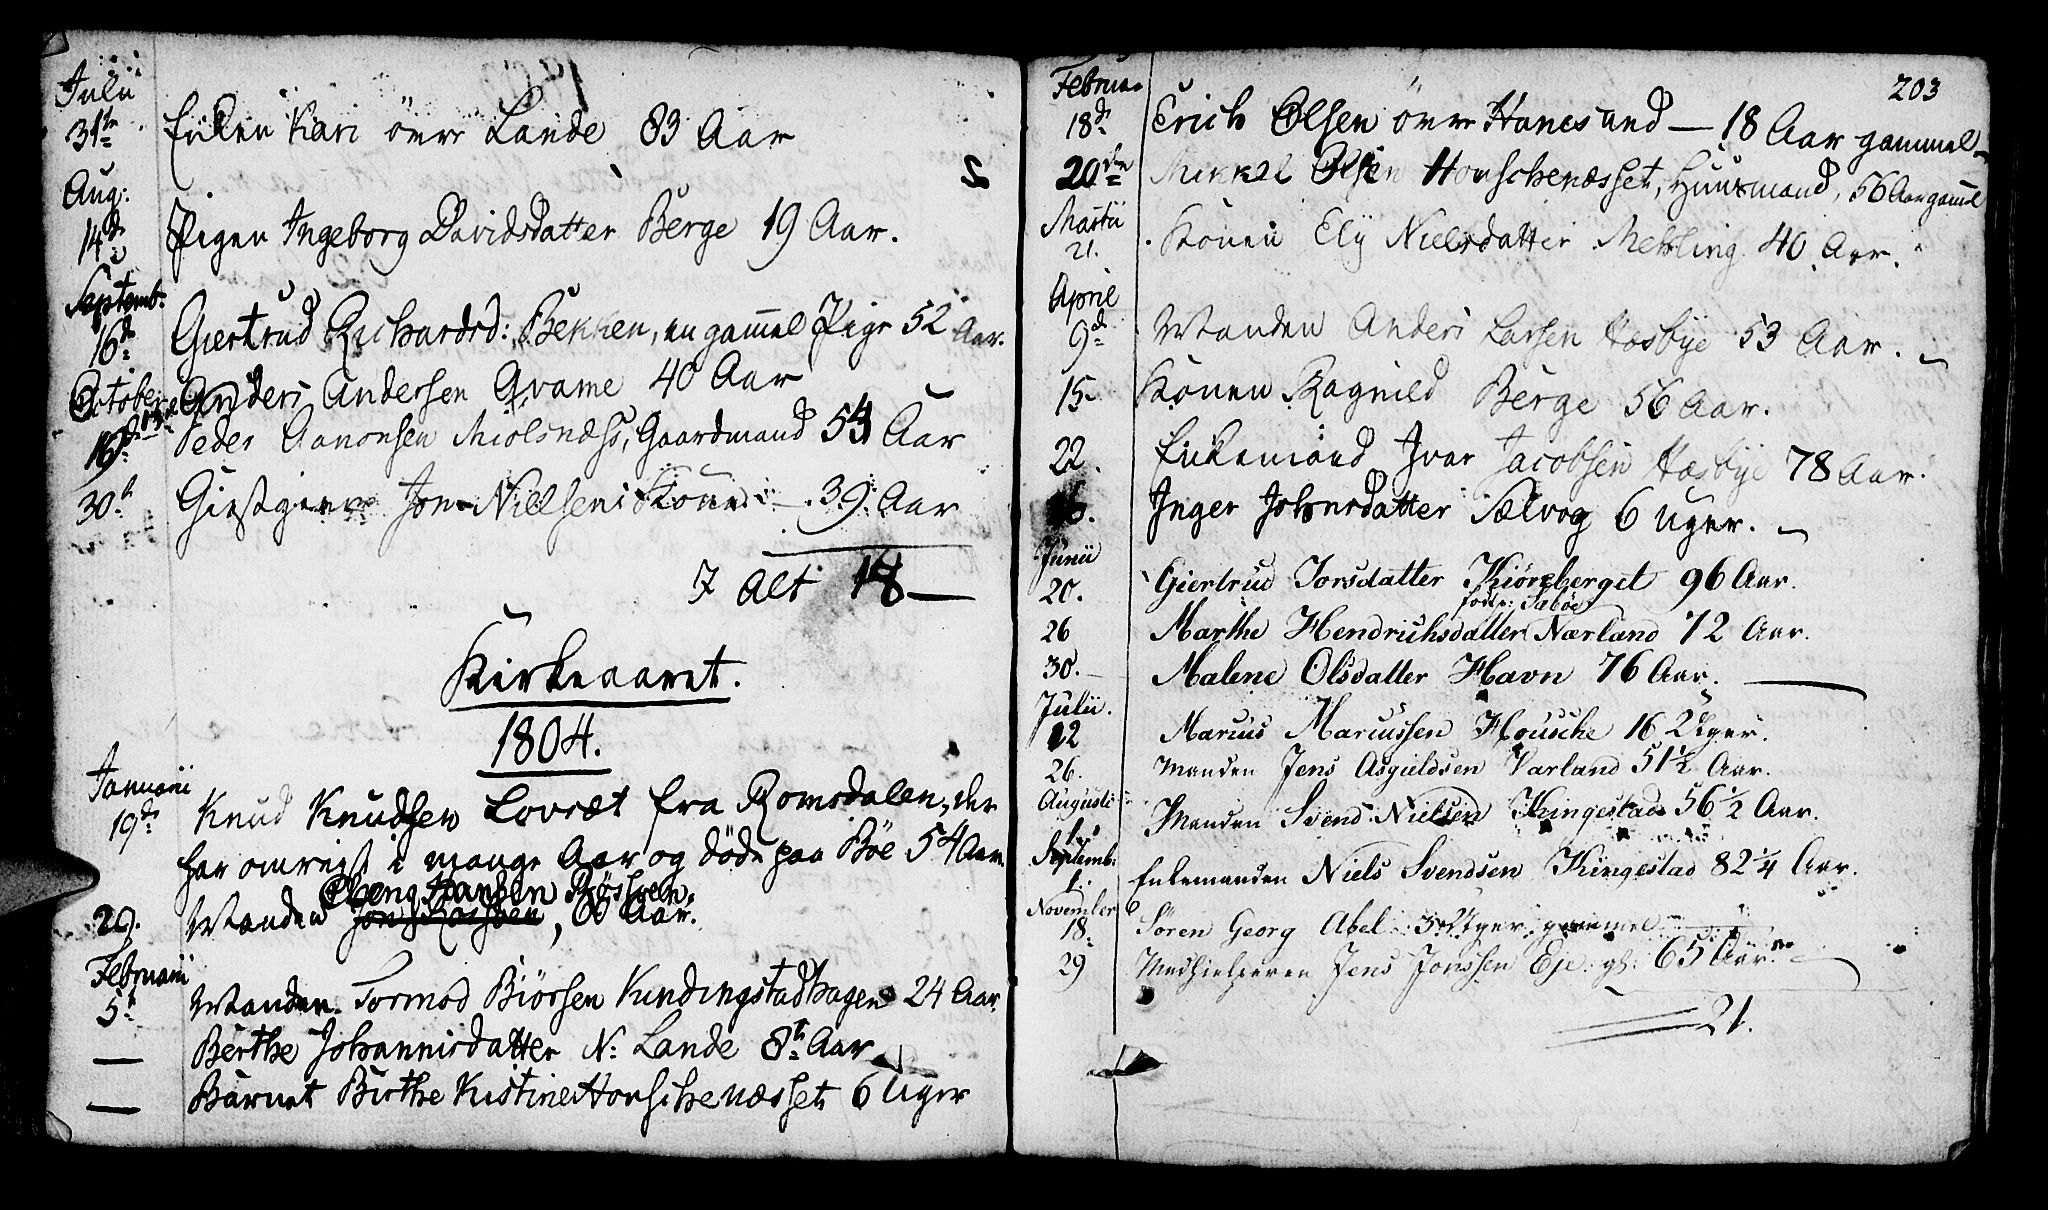 Julii
31te Enken Kari övre Lande 83 Aar
Aug:
14de Pigen Ingeborg Davidsdatter Berge 19 Aar.
Septemb:
16de Giertrud Richardsd: Bekken, en gamel Pige 52 Aar.
October 13de Anders Andersen Qvame 40 Aar
16de Peder Aanonsen Miölsnæss, Gaardmand 54 Aar
30te Giestgiver Jon Nielsens Kone 39 Aar
I Alt 18
Kirkeaaret.
1804.
Januarii
19de Knud Knudsen Lovræt fra Romsdalen, der
har omreist i mange Aar og döde paa Böe 54 Aar.
Oveng Hansen Röstveen,
29. Manden Jon Larssen, 60 Aar.
Februarii
5te Manden Tormod Biörsen Kindingstadhagen 24 Aar
— Berthe Johannisdatter N: Lande 8te Aar
— Barnet Birthe Kistine Houschenæsset 6 Uger
203
Februar
18de Erich Olsen övre Hanesund — 18 Aar gammel
20de Mikkel Olsen Houschenæsset, Huusmand, 56 Aar gamel
Martii
21. Konen Ely Nielsdatter Mekling 40 Aar.
April
9de Manden Anders Larsen Hæsbye 53 Aar.
15 Konen Ragnild Berge 56 Aar.
22. Enkemand Ivar Jacobsen Hæsbye 78 Aar.
26. Inger Johnsdatter Sælvog 6 Uger.
Junii
20. Giertrud Torsdatter Kiörzberget 96 Aar.
födt: Taböe
26 Marthe Hendrichsdatter Nærland 72 Aar.
30. Malene Olsdatter Havn 76 Aar.
Julii.
12 Marius Mariussen Housche 16 Uger.
26. Manden Jens Asgieldsen Varland 51 1/2 Aar.
Augusti
1. Manden Svend Nielsen Kingestad 56 1/2 Aar.
Septemb:
1. Enkemanden Niels Svendsen Kingestad 82 1/4 Aar.
November
18. Sören Georg Abel 3 Uger gammel
29 Medhielperen Jens Jonssen Eje gl: 65 Aar.
21.